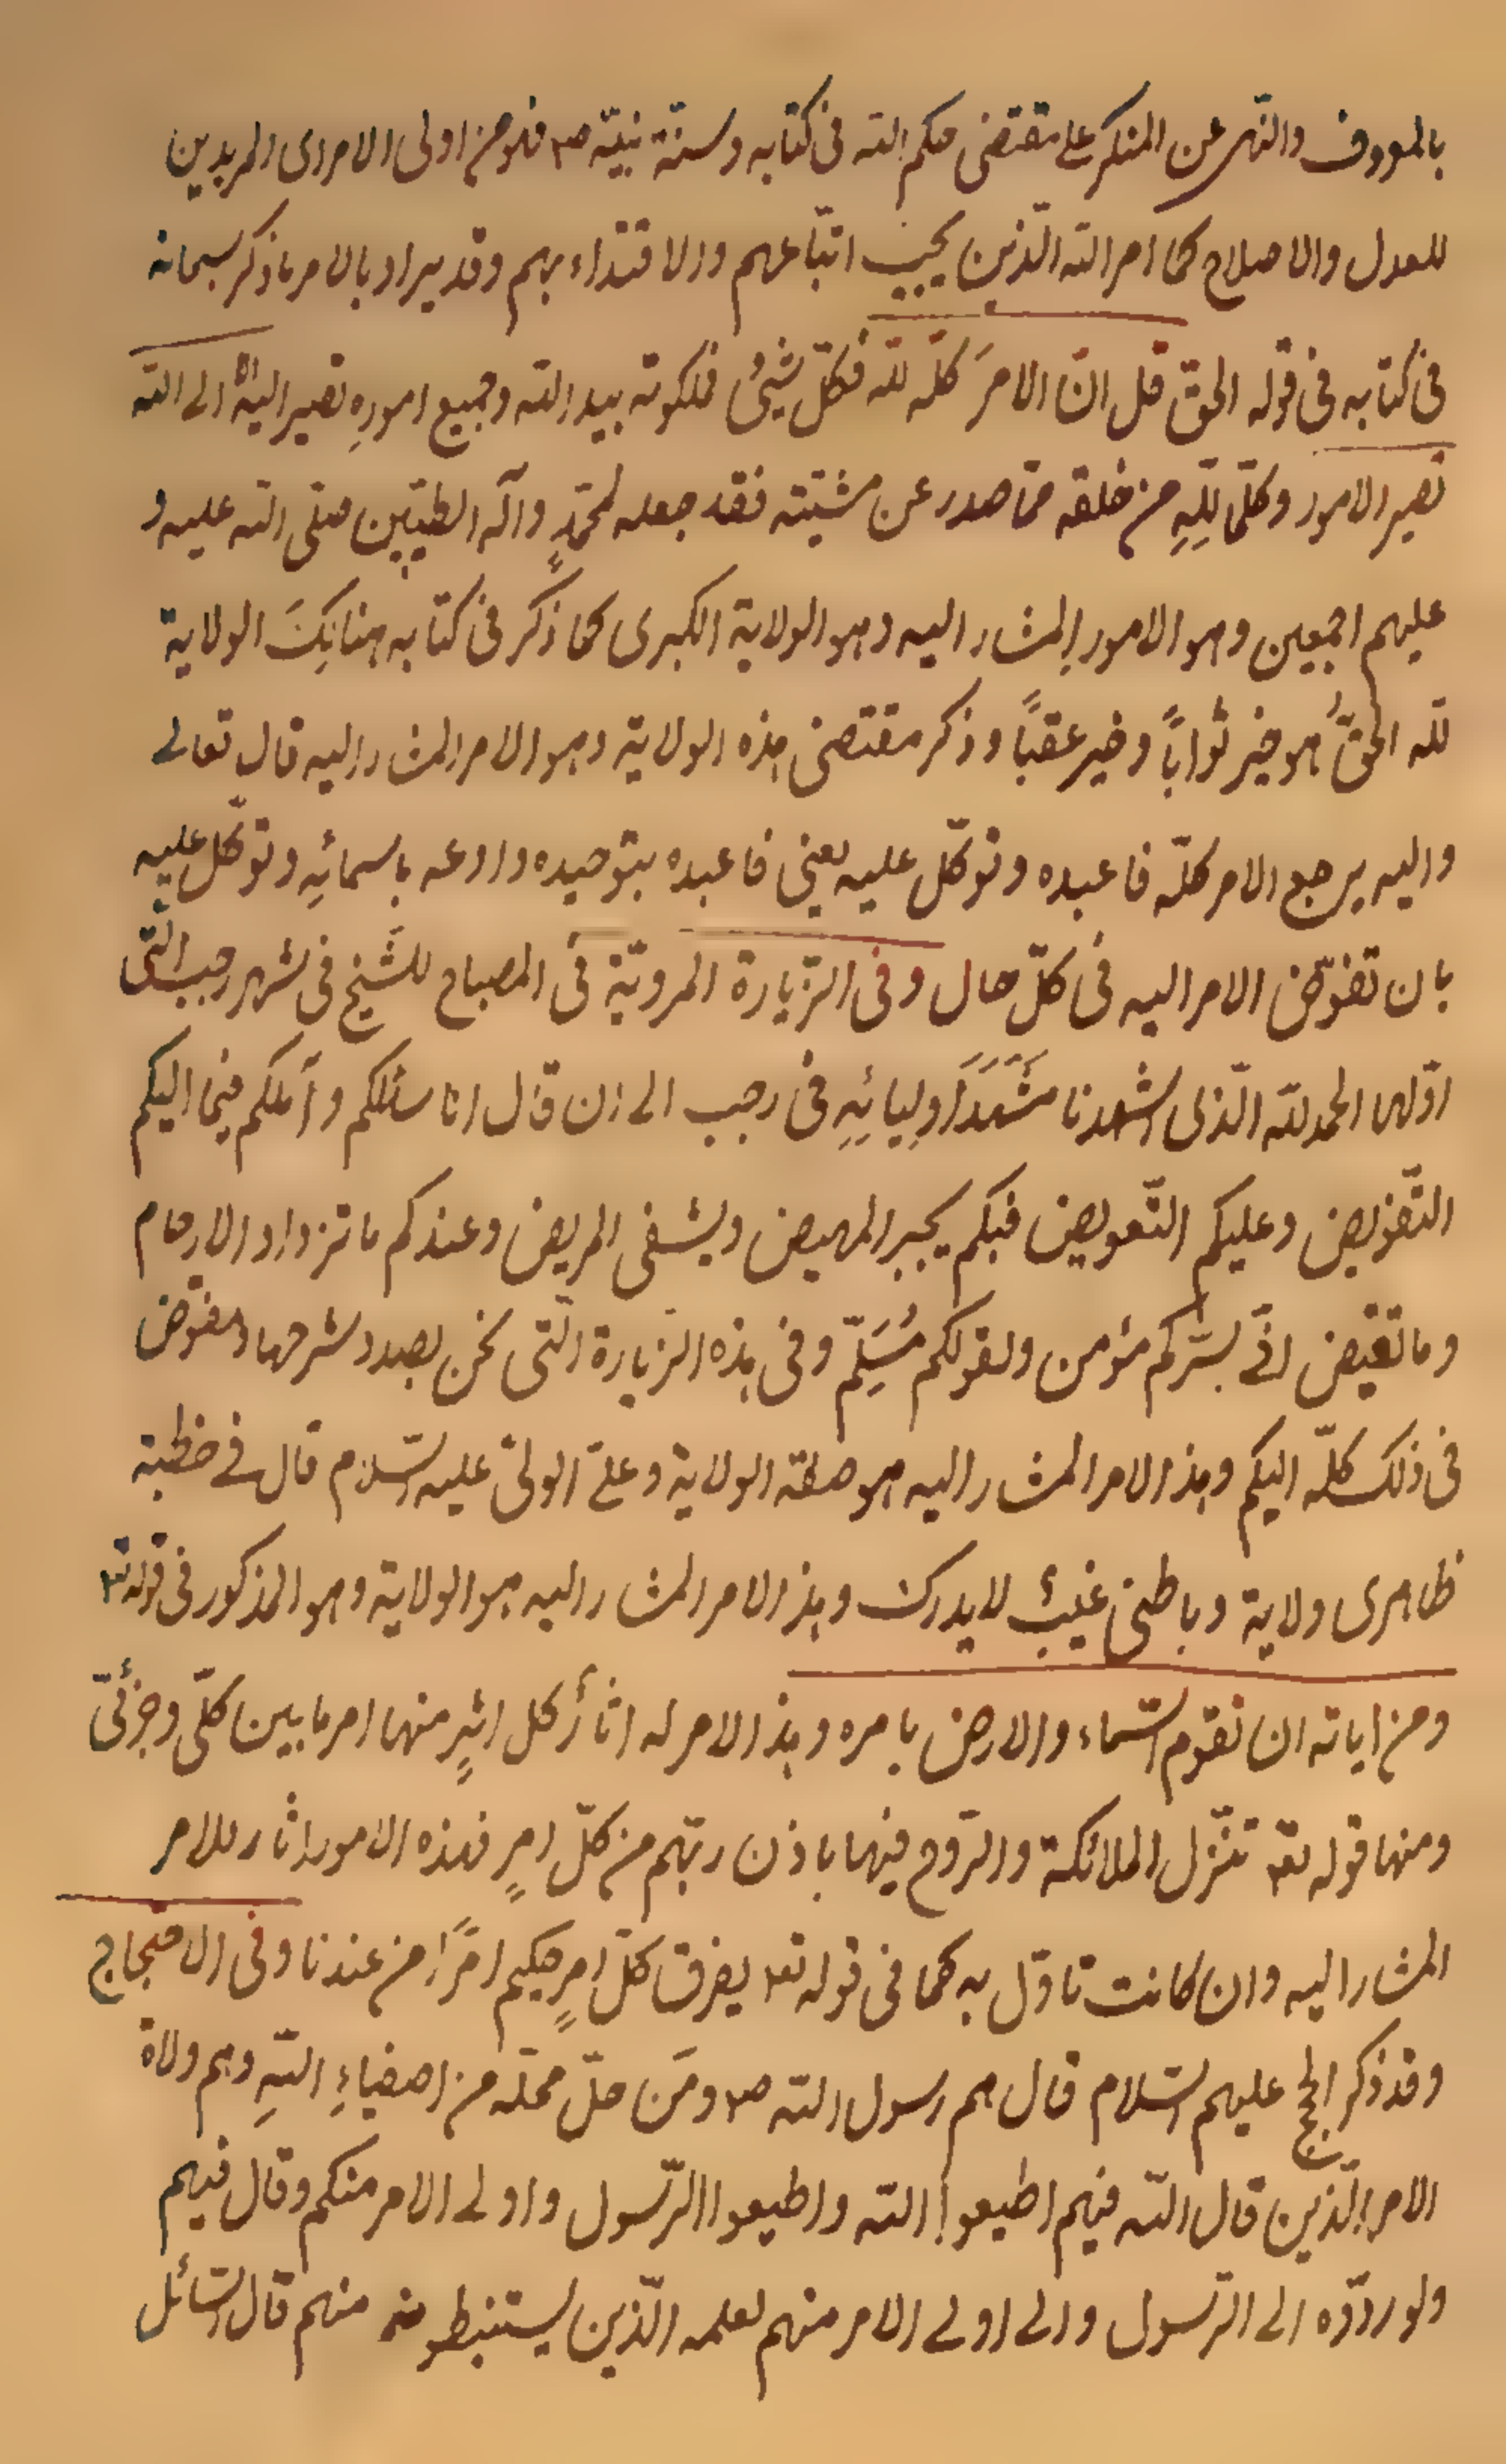 بالمعروف والنّهى عن المنكر على مقتضى حكم الله فى كتابه وسنّة نبيّه ص٣ فلو من اولى الامر اى المريدين
للعدل والاصلاح كما امر الله الّذين يجب اتّباعهم والاقتداء بهم وقد يراد بالامر ما ذكر سبحانه
فى كتابه فى قوله الحقّ قل انّ الامرَ كلّه لله فكلّ شيئ فملكوته بيد الله وجميع امورِه تصير اليه الا الى الله
تصير الامور وكلّما للّهِ من خلقه ممّا صدر عن مشيّته فقد جعله لمحمّدٍ وآله الطيّبين صلّى الله عليه و
عليهم اجمعين وهو الامور المشار اليه وهو الولاية الكبرى كما ذكر فى كتابه هنالِكَ الولاية
لله الحقُّ هو خير ثوابًا وخير عقبًا وذكر مقتضى هذه الولاية وهو الامر المشار اليه قال تعالى
واليه يرجع الامر كلّه فاعبده وتوكّل عليه يعنى فاعبده بتوحيده وادعه باسمائِه وتوكّل عليه
بان تفوّض الامر اليه فى كلّ حال وفى الزّيارة المرويّة فى المصباح للشّيخ فى شهر رجب الّتى
اوّلها الحمد لله الّذى اشهدنا مَشْهَدَ اَوليائِهِ فى رجب الى ان قال انا سائلكم وآملكم فيما اليكم
التّفويض وعليكم التّعويض فبكم يجبر المهيض ويشفى المريض وعندكم ما تزداد الارحام
وما تغيض انّى بسرّكم مؤمن ولقولكم مُسَلِّم وفى هذه الزّيارة الّتى نحن بصدد شرحها ومفوّض
فى ذلك كلّه اليكم وهذا الامر المشار اليه هو صفة الولاية وعلىّ الولىّ عليه السّلام قال فى خطبته
ظاهرى ولاية وباطنى غيبٌ لا يدرك وهذا الامر المشار اليه هو الولاية وهو المذكور فى قوله تع٣
ومن اياته ان تقوم السّماء والارض بامره وهذا الامر له اثارٌ لكل اثرٍ منها امر ما بين كلّى وجزئىّ
ومنها قوله تع٣ تنزّل الملائكة والرّوح فيها باذن ربّهم من كلّ امرٍ فهذه الامور اثار للامر
المشار اليه وان كانت تاوّل به كما فى قوله تع٣ يفرق كلّ امرٍ حكيم امرًا من عندنا وفى الاحتجاج
وقد ذكر الحجج عليهم السّلام قال هم رسول الله ص٣ ومَن حلّ محلّه من اصفياءِ اللهِ وهم ولاة
الامر الّذين قال الله فيهم اطيعوا الله واطيعوا الرّسول واولى الامر منكم وقال فيهم
ولو ردّوه الى الرّسول والى اولى الامر منهم لعلمه الّذين يستنبطونه منهم قال السّائل